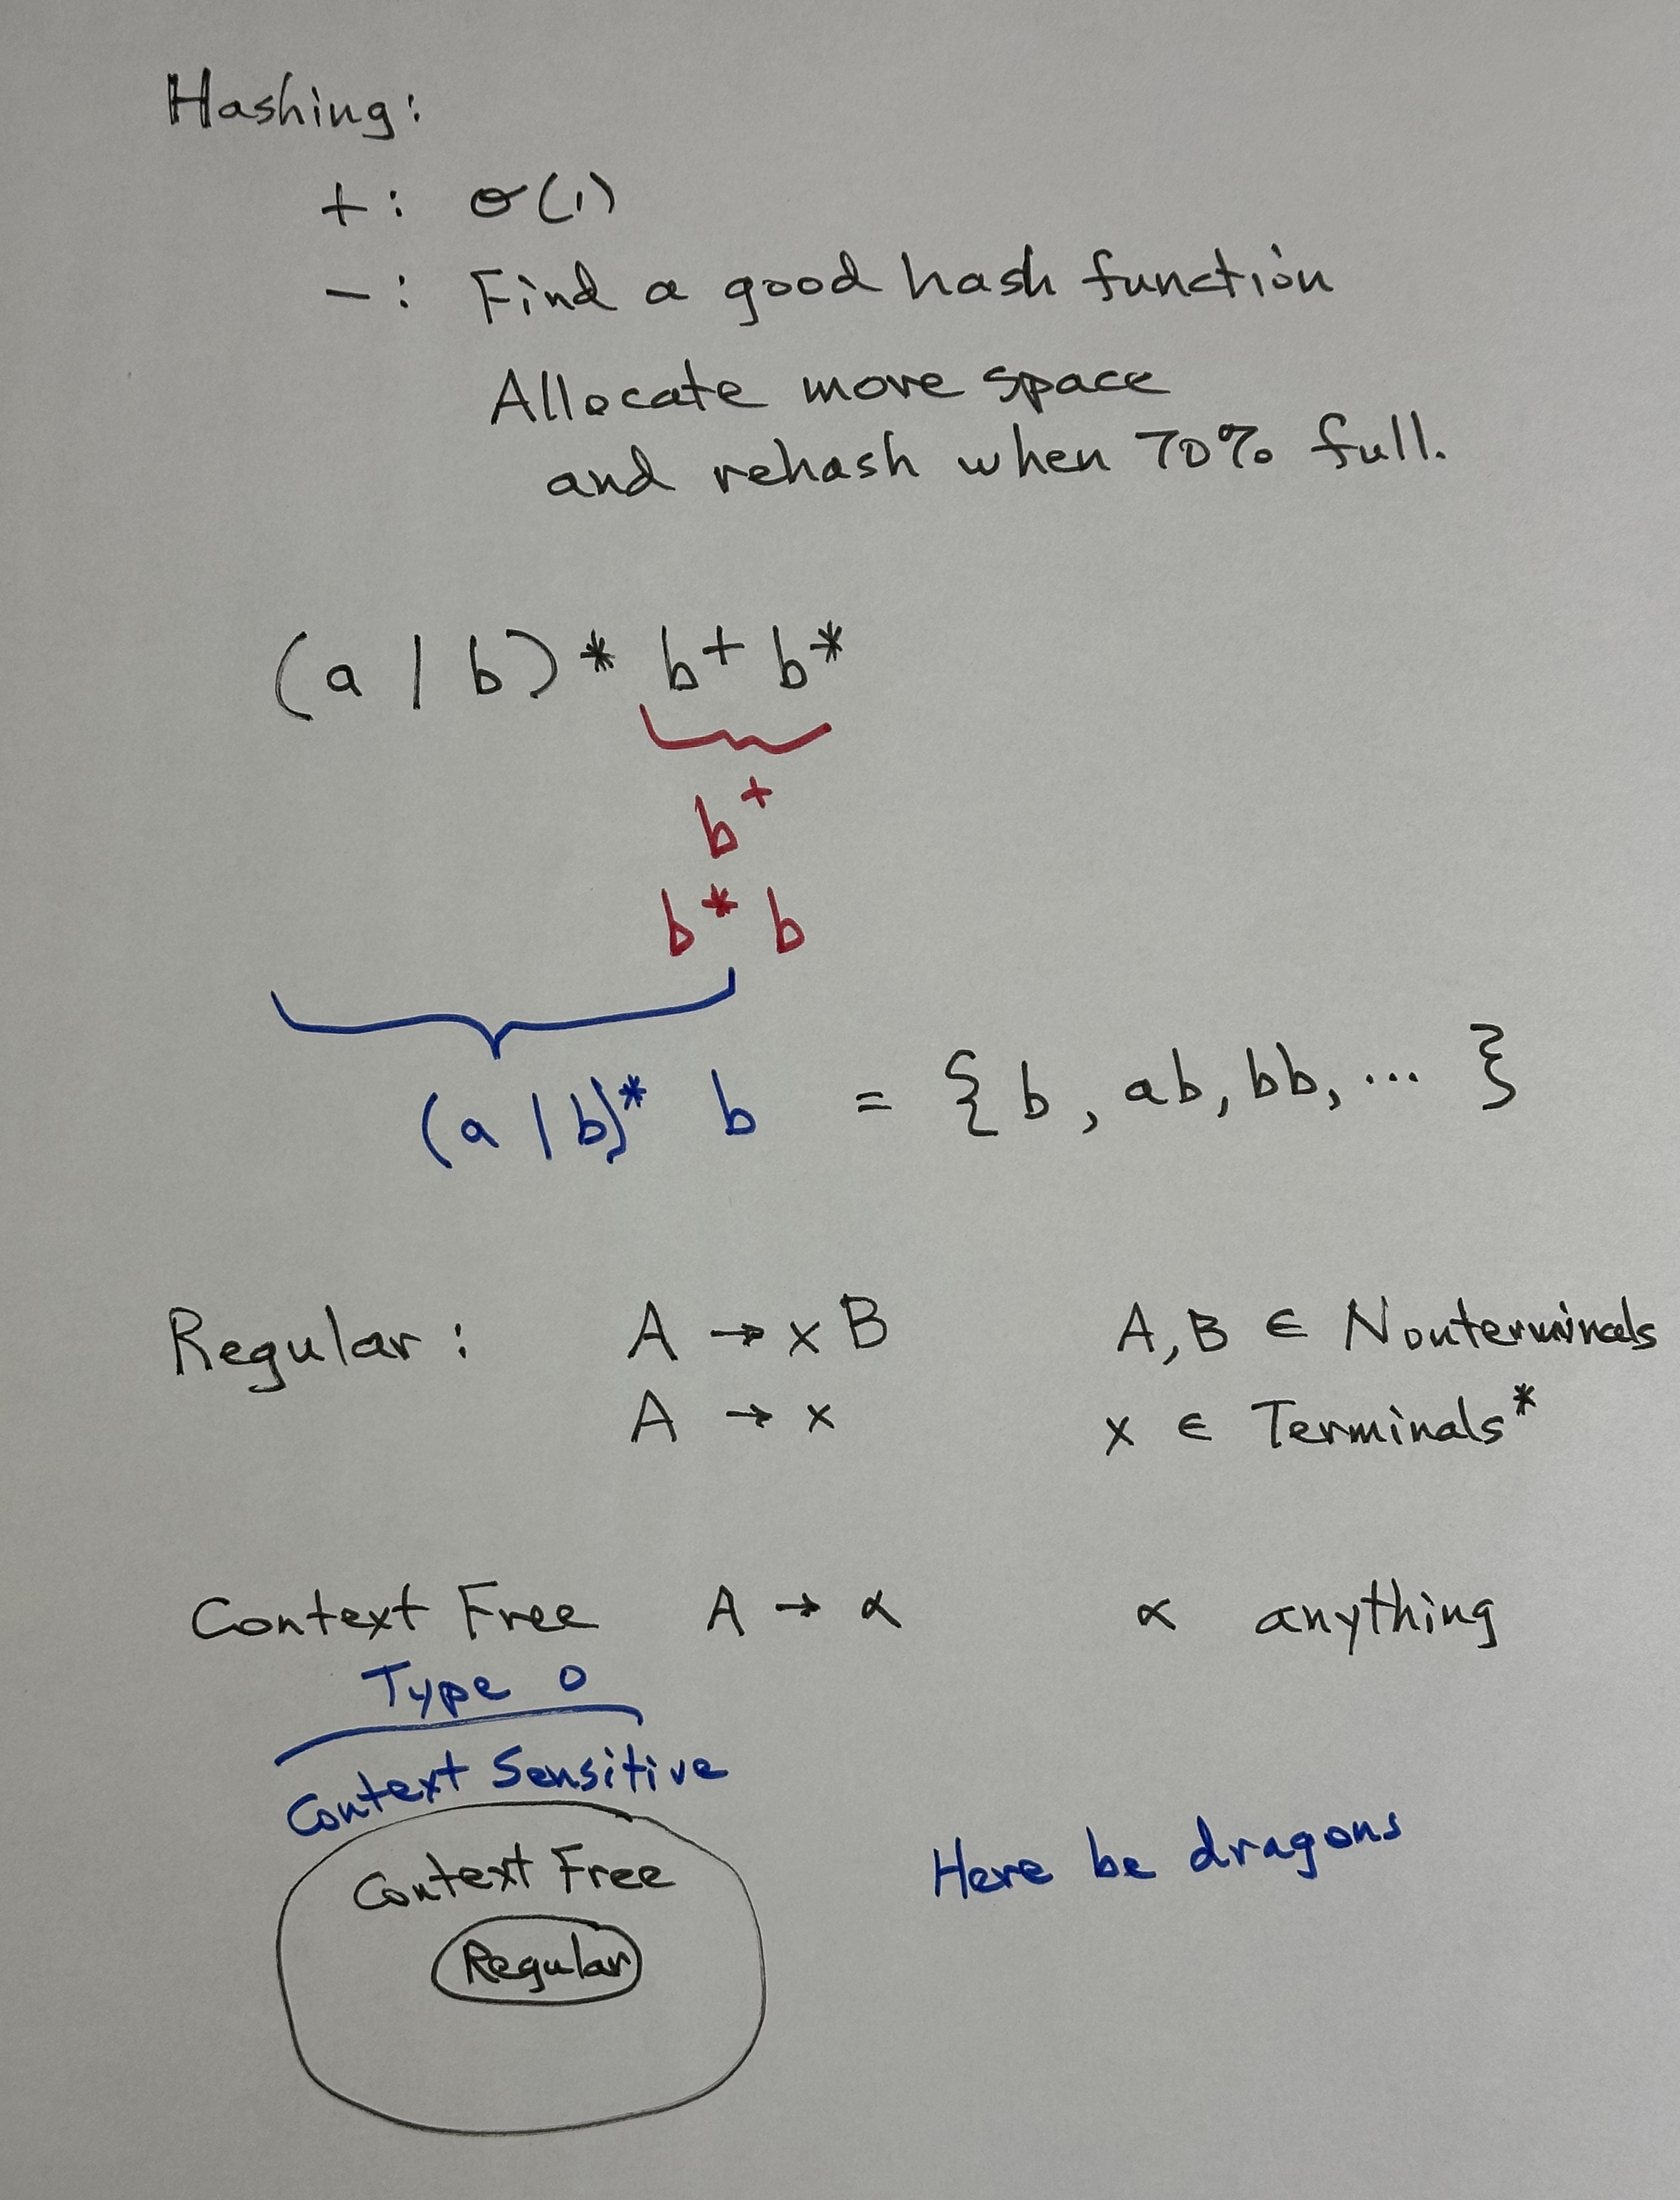 Hashing:
+: O(1)
-: Find a good hash function
Allocate more space
and rehash when 70% full.
(a | b)* b+ b*
b+
b* b
(a | b)* b = { b, ab, bb, ... }
Regular: A → x B A, B ∈ Nonterminals
A → x x ∈ Terminals*
Context Free A → α α anything
Type 0
Context Sensitive
Context Free
Here be dragons
Regular